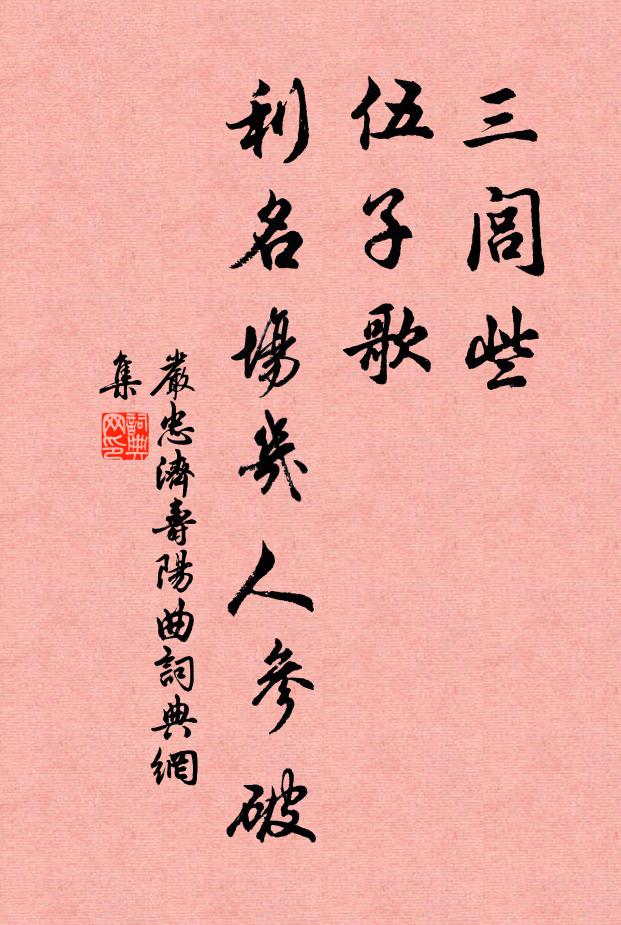 三閭些
伍子歌
利名場幾人參破
嚴忠濟壽陽曲詞典網
集
詞典
网印